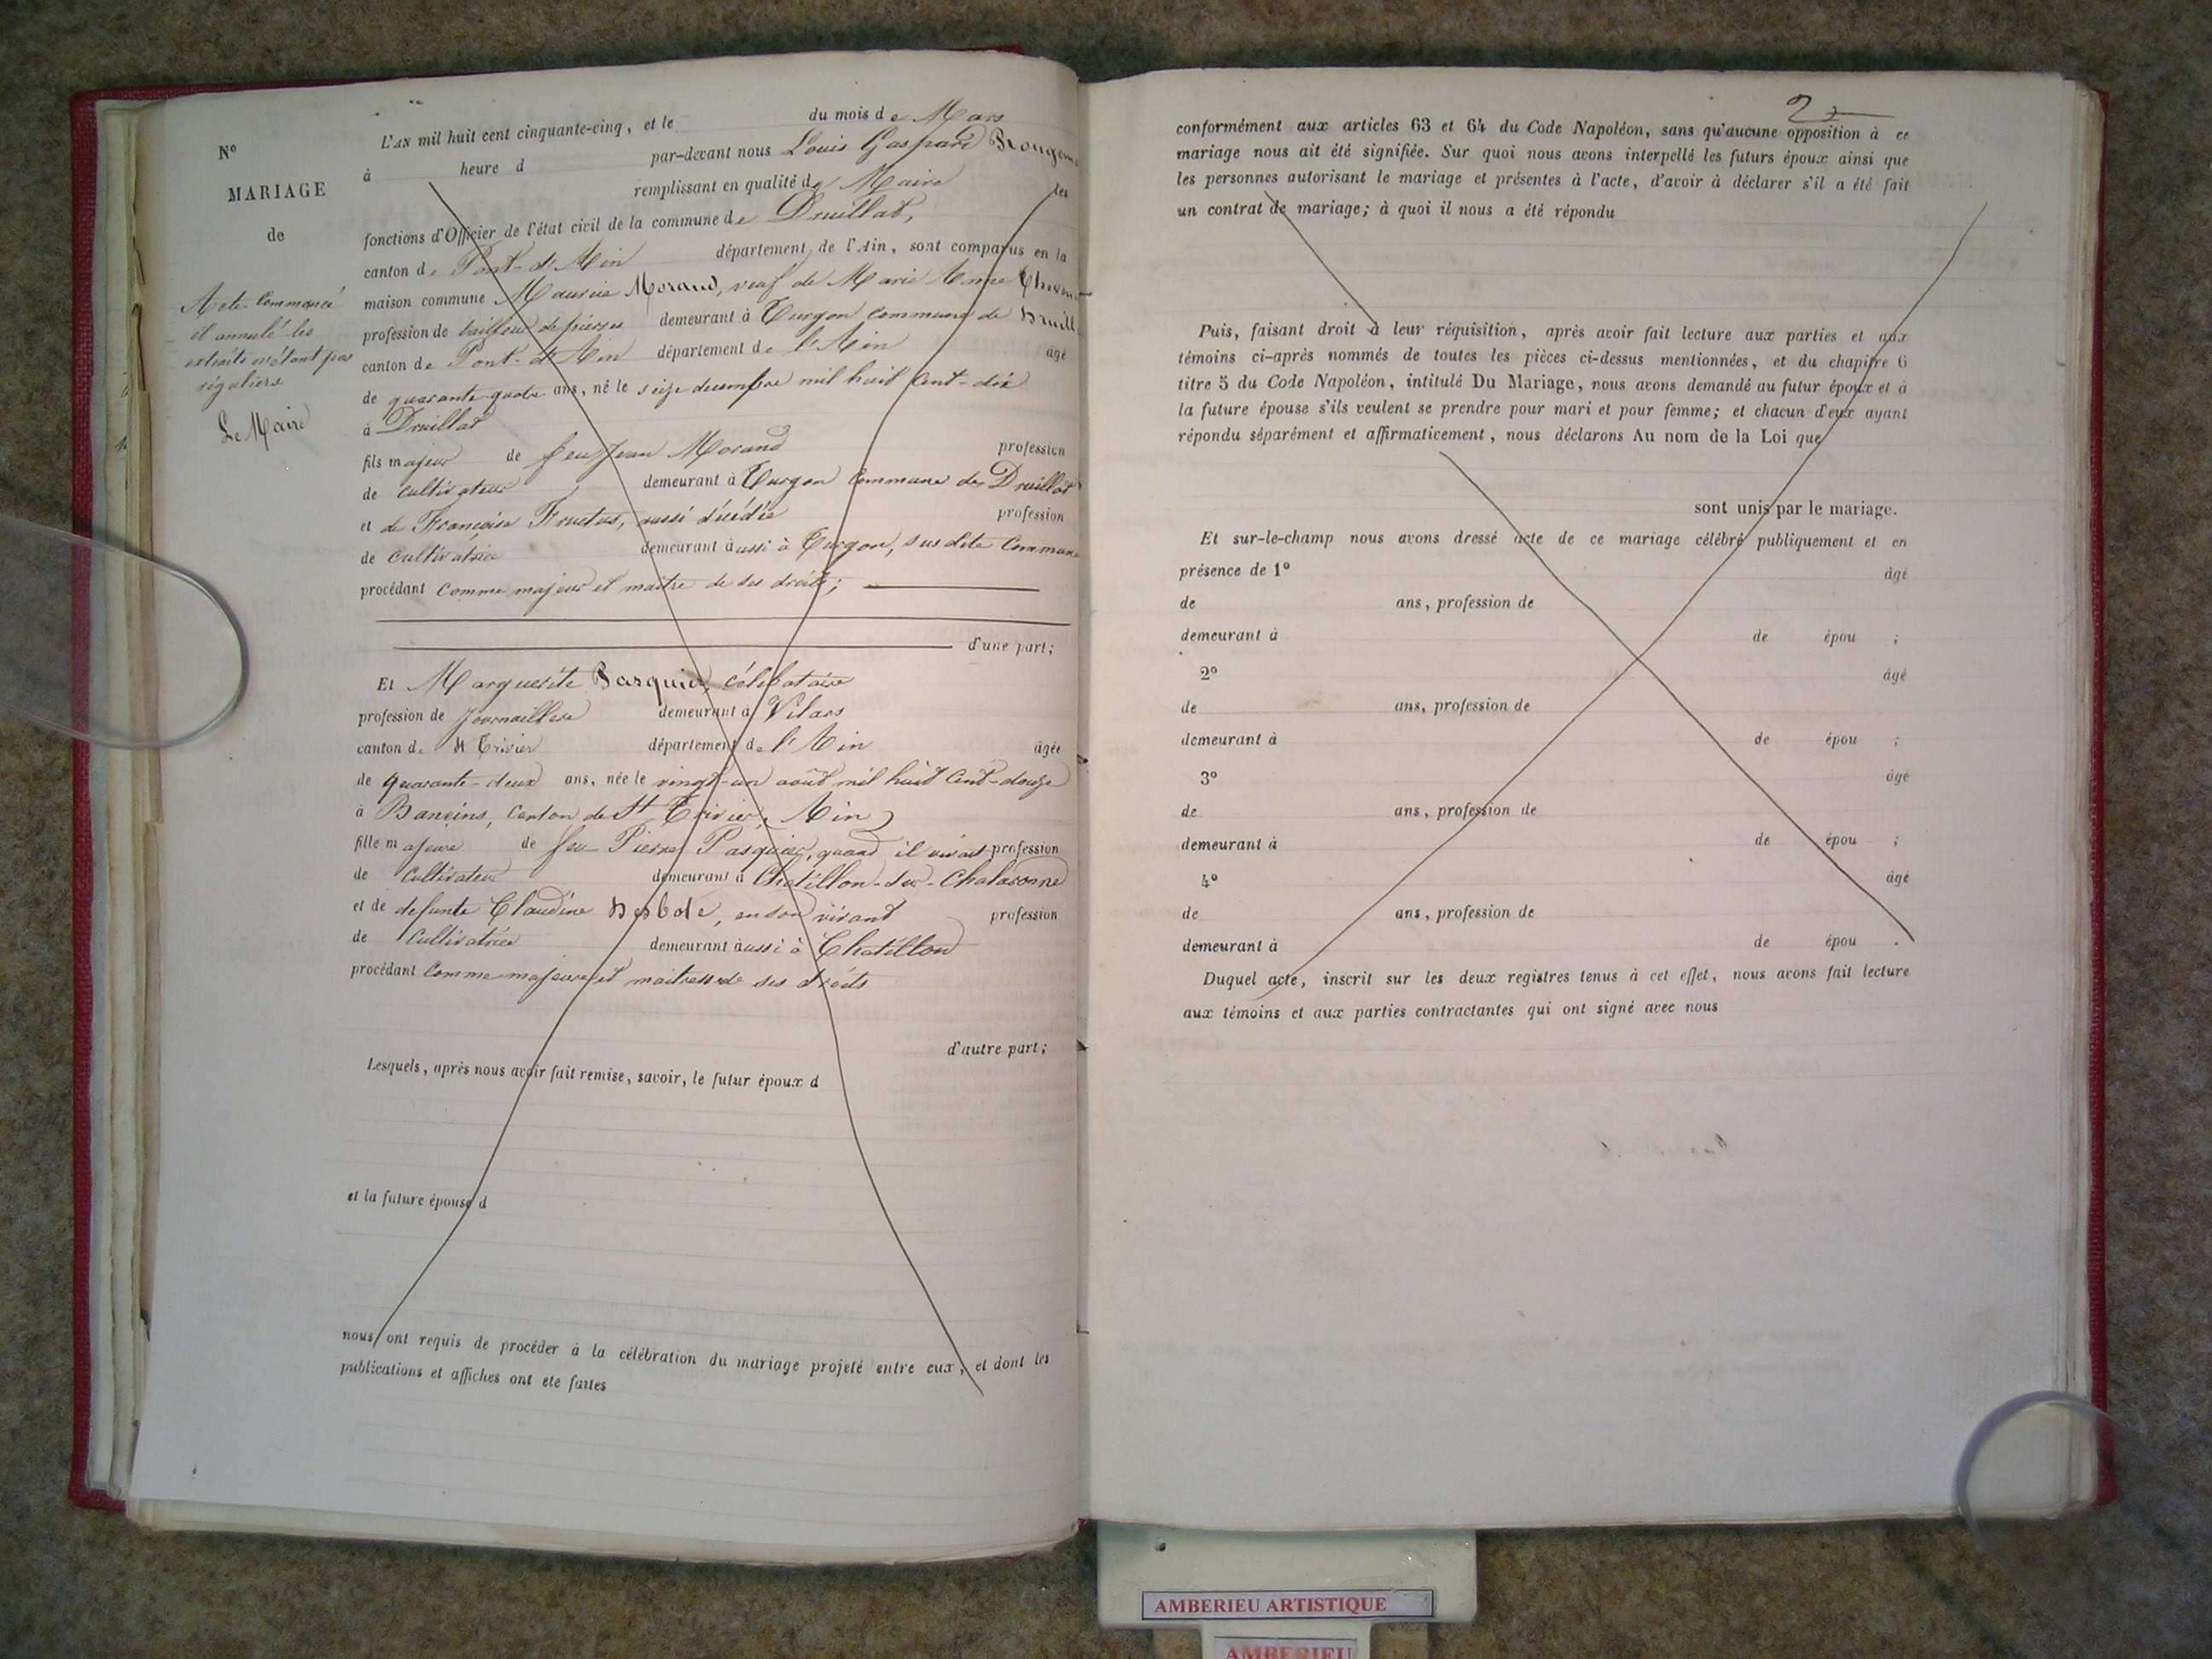 N°
MARIAGE
de
Acte Commencé
et annulé les
extraits n'étant pas
réguliers
Le Maire
L'AN mil huit cent cinquante-cinq, et le du mois de Mars
à heure d par-devant nous Louis Gaspard
remplissant en qualité de Maire les
fonctions d'Officier de l'état civil de la commune de Druillat,
canton de Pont-d'Ain département de l'Ain, sont comparus en la
maison commune Maurice Morand, veuf de Marie Anne
profession de tailleur de pierres demeurant à Turgon commune de
canton de Pont-d'Ain département de l'Ain âgé
de quarante-quatre ans, né le seize decembre mil huit cent-dix
à Druillat
fils majeur de feu Jean Morand profession
de cultivateur demeurant à Turgon Commune de Druillat
et de Françoise Fructus, aussi décédée profession
de Cultivatrice demeurant aussi à Turgon, sus dite Commune
procédant comme majeur et maître de ses droits;
d'une part;
Et Marguerite Pasquier, célibataire
profession de Journaillère demeurant à Vilars
canton de St Trivier département de l'Ain âgée
de quarante-deux ans, née le vingt-un août mil huit Cent-douze
à Baneins, canton de St Trivier, Ain
fille majeure de feu Pierre Pasquier, quand il vivait profession
de Cultivateur demeurant à Chatillon-sur-Chalaronne
et de defunte Claudine en son vivant profession
de Cultivatrice demeurant aussi à Chatillon
procédant comme majeure et maitresse de ses droits
d'autre part;
Lesquels, après nous avoir fait remise, savoir, le futur époux d
et la future épouse d
nous ont requis de procéder à la célébration du mariage projeté entre eux, et dont les
publications et affiches ont été faites
2
conformément aux articles 63 et 64 du Code Napoléon, sans qu'aucune opposition à ce
mariage nous ait été signifiée. Sur quoi nous avons interpellé les futurs époux ainsi que
les personnes autorisant le mariage et présentes à l'acte, d'avoir à déclarer s'il a été fait
un contrat de mariage; à quoi il nous a été répondu
Puis, faisant droit à leur réquisition, après avoir fait lecture aux parties et aux
témoins ci-après nommés de toutes les pièces ci-dessus mentionnées, et du chapitre 6
titre 5 du Code Napoléon, intitulé Du Mariage, nous avons demandé au futur époux et à
la future épouse s'ils veulent se prendre pour mari et pour femme; et chacun d'eux ayant
répondu séparément et affirmativement, nous déclarons Au nom de la Loi que
sont unis par le mariage.
Et sur-le-champ nous avons dressé acte de ce mariage célébré publiquement et en
présence de 1° âgé
de ans, profession de
demeurant à de épou ;
2° âgé
de ans, profession de
demeurant à de épou ;
3° âgé
de ans, profession de
demeurant à de épou ;
4° âgé
de ans, profession de
demeurant à de épou .
Duquel acte, inscrit sur les deux registres tenus à cet effet, nous avons fait lecture
aux témoins et aux parties contractantes qui ont signé avec nous
AMBERIEU ARTISTIQUE
AMBERIEU